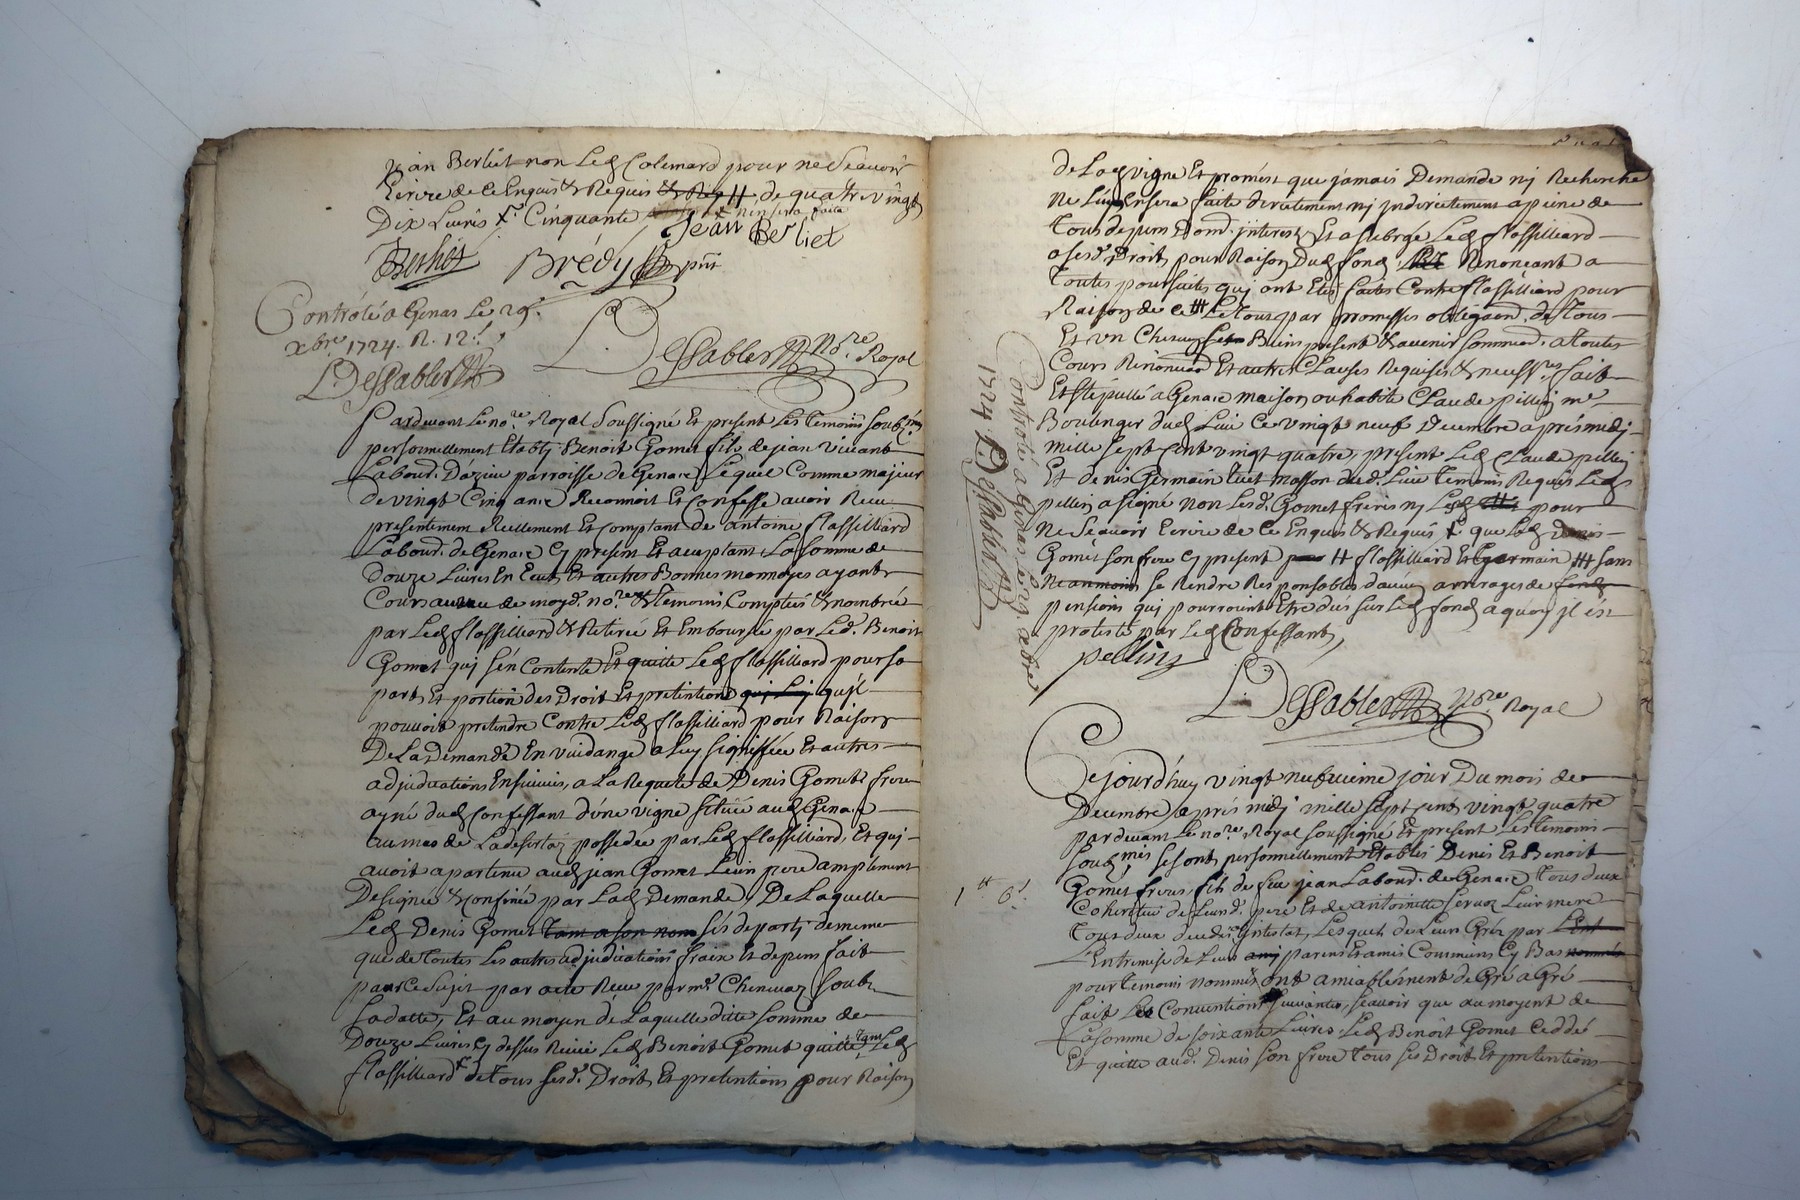 jean Berliet non Led Colemard pour ne Scavoir
Ecrire de Ce Enquis & Requis & Req # de quatre vingt
Dix Livres x Cinquante x n'en sera faite
Jean Berliet
Berliet Brédy pnt
Controlé a Genas Le 29.
xbre 1724. R. 12s
LDessablers
L. Dessablers No.re Royal
Pardevant Le no.re Royal Soussigné Et present Les temoins soubz.
personnellement Etably Benoit Gomet fils de jean vivant
Labour. D'azieu parroisse de Genas Lequel Comme majeur
de vingt Cinq ans Reconnoit Et Confesse avoir Receu
presentement Reellement Et Comptant de antoine flassilliard
Labour. de Genas Cy present Et aceptant La somme de
douze Livres En Ecus Et autres Bonnes monnoyes ayant
Cours au veu de moyd. no.re & temoins Comptés & nombrée
par Led flassilliard & Retirée Et Emboursée par Led. Benoit
Gomet quj s'en Contente Et quitte Led flassilliard pour sa
part Et portion des Droit Et pretentions quj Luj qu'il
pouvoit pretendre Contre Led flassilliard pour Raison
De La Demande En vuidange a Luy signiffiée Et autres
adjudications Ensuivies, a La Requete de Denis Gomet frere
ayné dud Confessant d'une vigne scituée aud Genas
au mas de Ladeserta possedée par Led flassilliard, Et quj
avoit apartenu aud jean Gomet Leur pere amplement
Designée & Confinée par Lad Demande, De Laquelle
Led Denis Gomet tant a son nom s'es departj de meme
que de toutes Les autres adjudications fraix Et depens fait
pour Ce Sujet par acte Receu par me. Chenevaz soubz
sa datte, Et au moyen de Laquelle ditte somme de
Douze Livres Cy dessus Reçue Led Benoit Gomet quitte tant Led
flassilliard x de tous sesd. Droits Et pretentions pour Raison
de Lad vigne Et promest que jamais Demande nj Recherche
ne Luy En sera faite directement nj jndirectement a peine de
tous depens Dom. jnterest Et a subrogé Led flassilliard
a sesd. Droits pour Raison Dud fond Renonceant a
toutes poursuites quj ont Eté faites Contre flassilliard pour
Raison de ce # Le tout par promesses obligaon. de tous
Et un Chacun Ses Biens present & avenir soumiss. a toutes
Cours Renonciaon Et autres Clauses Requises & necess.res fait
Et Stipullé a Genas maison ou habite Claude pellin me
Boulenger dud Lieu Ce vingt neuf Decembre aprés midj
mille sept Cent vingt quatre, present Led Claude pellin
Et denis Germain Me masson dud. Lieu temoins Requis Led
pellin a signé non Lesd. Gomet freres nj Led pour
ne Scavoir Ecrire de Ce Enquis & Requis x que Led Denis
Gomet son frere Cy present # flassilliard Et Germain # sans
neanmoins se Rendre Responsables d'aucuns arrerages de
pensions quj pourroient Etre dus sur Led fond a quoy jl est
protesté par Led Confessant,
pellin
L. Dessablers No.re Royal
Controlé a Genas Le 29. xbre
1724 LDessablers
Cejourd'huy vingt neufvieme jour Du mois de
Decembre aprés midj mille sept cent vingt quatre
pardevant Le no.re Royal soussigné Et present Les temoins
soubz nmés se sont personnellement Etablis Denis Et Benoit
Gomet freres fils de feu jean Labour. de Genas tous deux
1tt 6s
Coheritiers de Leurd. pere Et de antoinette servoz Leur mere
tous deux decedés jntestat, Lesquels de Leurs Gréz par Lent
L'Entremise de Leurs amj parens Et amis Communs Cy Bas nommés
pour temoins nommés ont amiablement de Gré a Gré
fait Les Conventions suivantes, scavoir que au moyent de
La somme de soixante Livres Led Benoit Gomet Ceddé
Et quitte aud. Denis son frere tous ses Droit Et pretentions